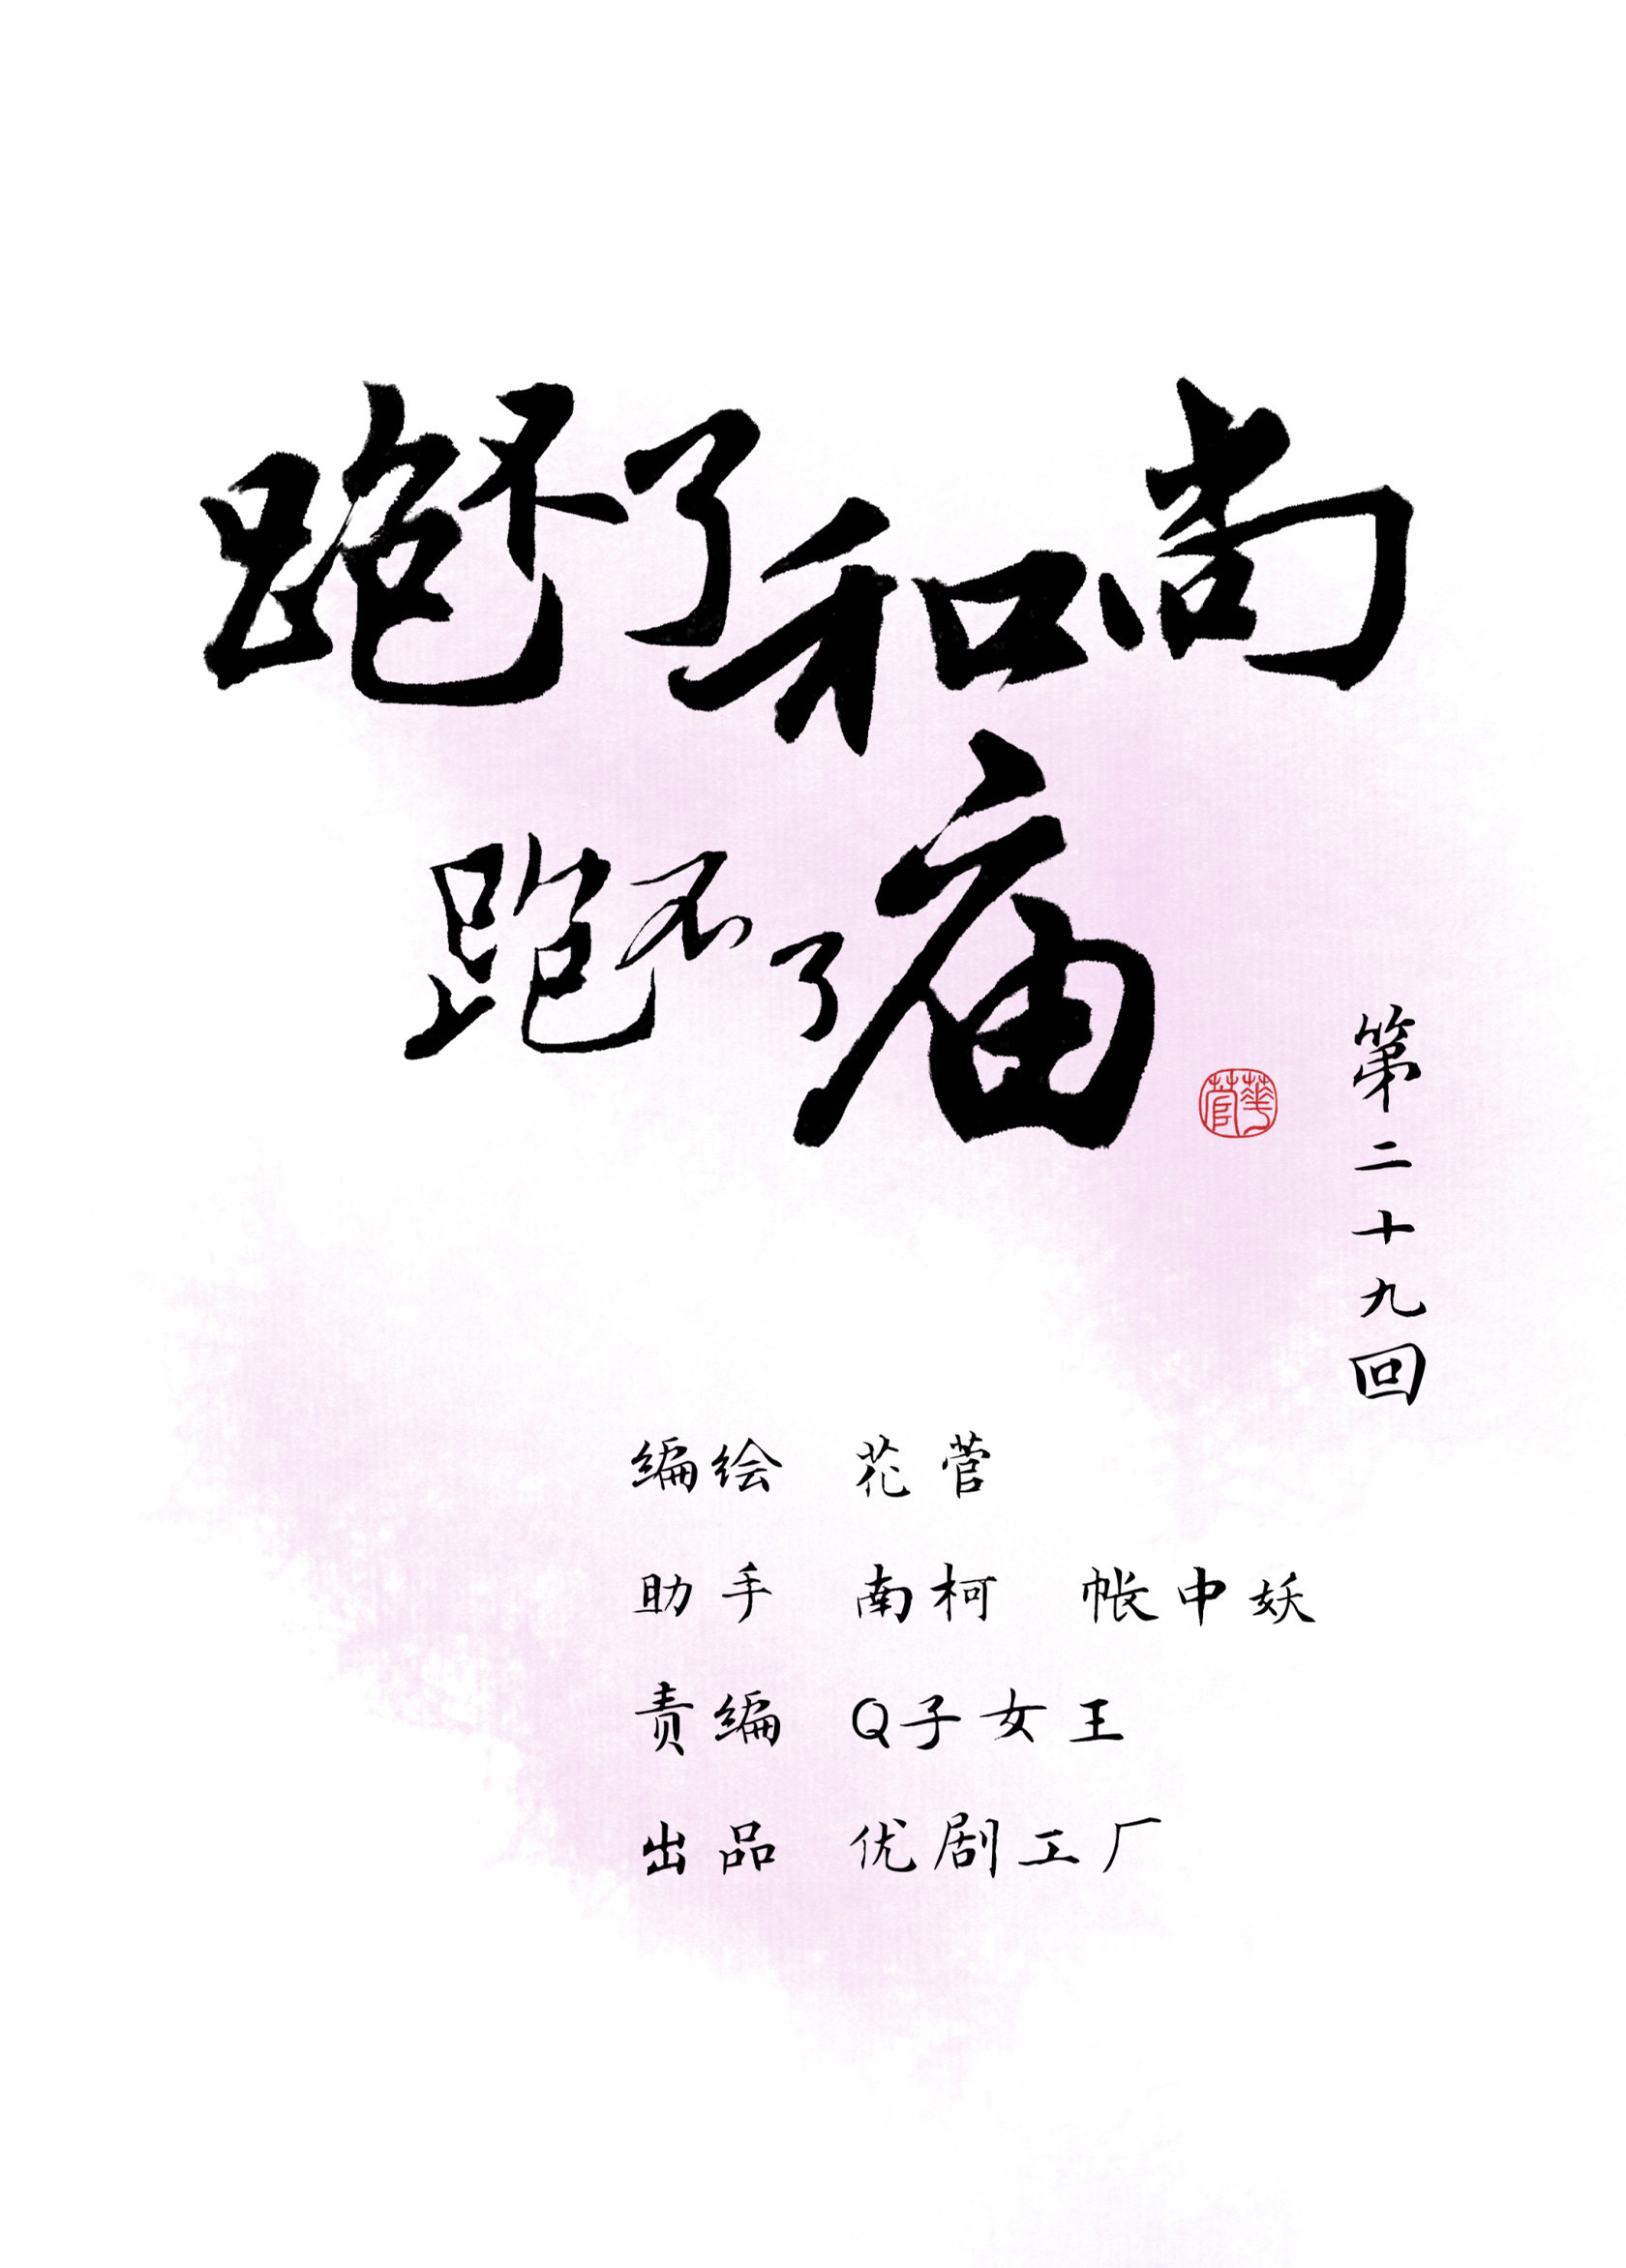 跑不了和尚
跑不了庙
華菅
第二十九回
编绘 花菅
助手 南柯 帐中妖
责编 Q子女王
出品 优剧工厂